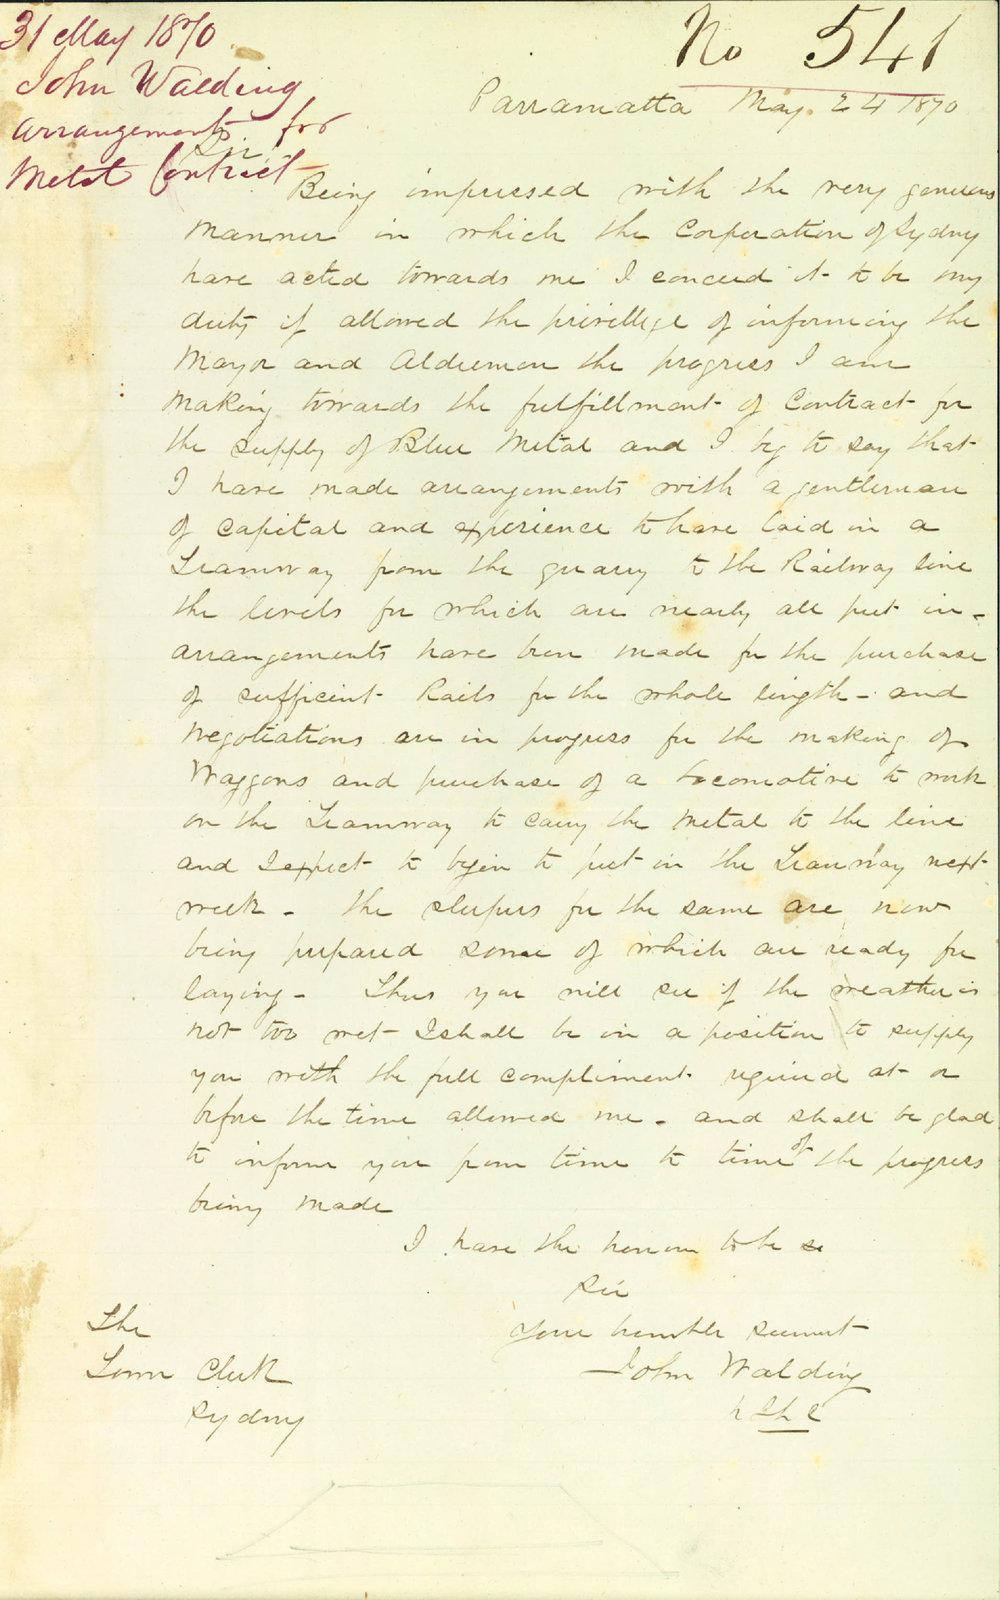 31 May 1870
John Walding
Arrangements for
Metal Contract
No 541
Parramatta May 24 1870
Sir
Being impressed with the very generous
manner in which the Corporation of Sydney
have acted towards me I conceed it to be my
duty if allowed the privillege of informing the
Mayor and Aldermen the progress I am
making towards the fulfillment of Contract for
the supply of Blue Metal and I beg to say that
I have made arrangements with a gentleman
of capital and experience to have laid in a
Tramway from the quarry to the Railway line
the levels for which are nearly all put in -
arrangements have been made for the purchase
of sufficient Rails for the whole length - and
negotiations are in progress for the making of
Waggons and purchase of a Locomotive to work
on the Tramway to carry the metal to the line
and I expect to begin to put in the Tramway next
week - the sleepers for the same are now
being prepared some of which are ready for
laying - Thus you will see if the weather is
not too wet I shall be in a position to supply
you with the full compliment required at or
before the time allowed me - and shall be glad
to inform you from time to time of the progress
being made
I have the honour to be
Sir
Your humble servant
John Walding
The
Town Clerk
Sydney